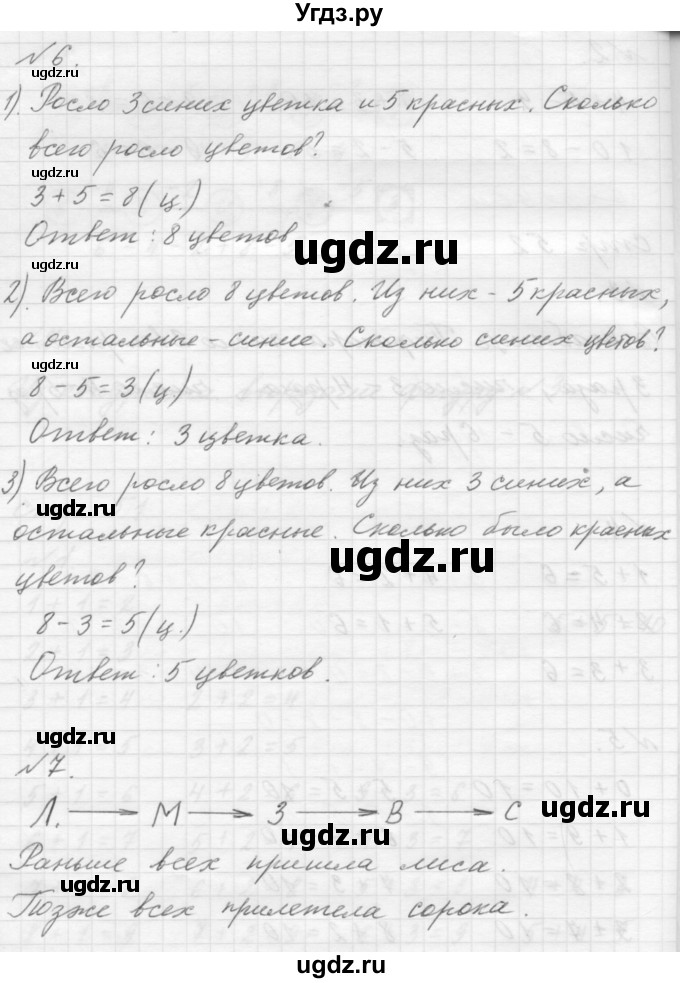 Угдз.ру
№6.
ugdz.ru
1). Росло 3 синих цветка и 5 красных. Сколько
всего росло цветов?
ugdz.ru
3 + 5 = 8 (ц.)
Ответ: 8 цветов
ugdz.ru
ugdz.ru
2). Всего росло 8 цветов. Из них - 5 красных,
а остальные - синие. Сколько синих цветов?
ugdz.ru
8 - 5 = 3 (ц)
Ответ: 3 цветка.
3) Всего росло 8 цветов. Из них 3 синих, а
ugdz.ru
остальные красные. Сколько было красных
ugdz.ru
цветов?
8 - 3 = 5 (ц.)
Ответ: 5 цветков.
ugdz.ru
№7.
Л. → М → З → В → С
ugdz.ru
ugdz.ru
Раньше всех пришла лиса.
ugdz.ru
Позже всех прилетела сорока.
ugdz.ru